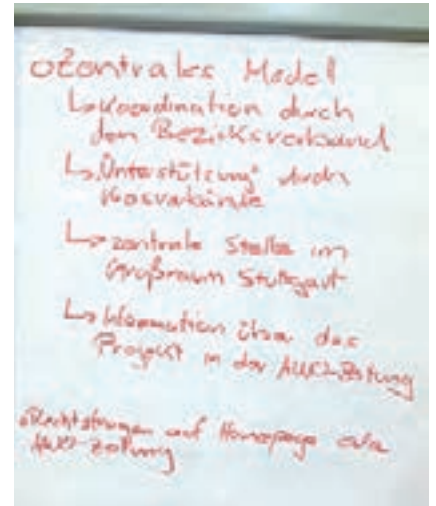 o Zentrales Modell
↳ Koordination durch
den Bezirksverband
↳ "Unterstützung" durch
Kreisverbände
↳ zentrale Stelle im
Großraum Stuttgart
↳ Information über das
Projekt in der AWO-Zeitung
auf Homepage oder
AWO-Zeitung